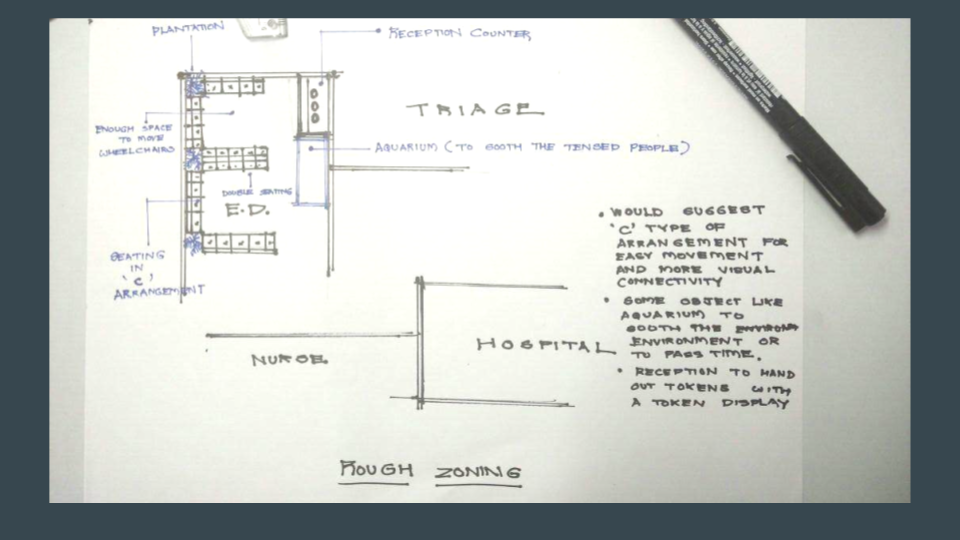 PLANTATION
RECEPTION COUNTER
TRIAGE
ENOUGH SPACE
TO MOVE
WHEELCHAIRS
AQUARIUM (TO SOOTH THE TENSED PEOPLE)
DOUBLE SEATING
E.D.
SEATING
IN
'C'
ARRANGEMENT
• WOULD SUGGEST
'C' TYPE OF
ARRANGEMENT FOR
EASY MOVEMENT
AND MORE VISUAL
CONNECTIVITY
• SOME OBJECT LIKE
AQUARIUM TO
SOOTH THE
ENVIRONMENT OR
TO PASS TIME.
• RECEPTION TO HAND
OUT TOKENS WITH
A TOKEN DISPLAY
HOSPITAL
NURSE.
ROUGH ZONING